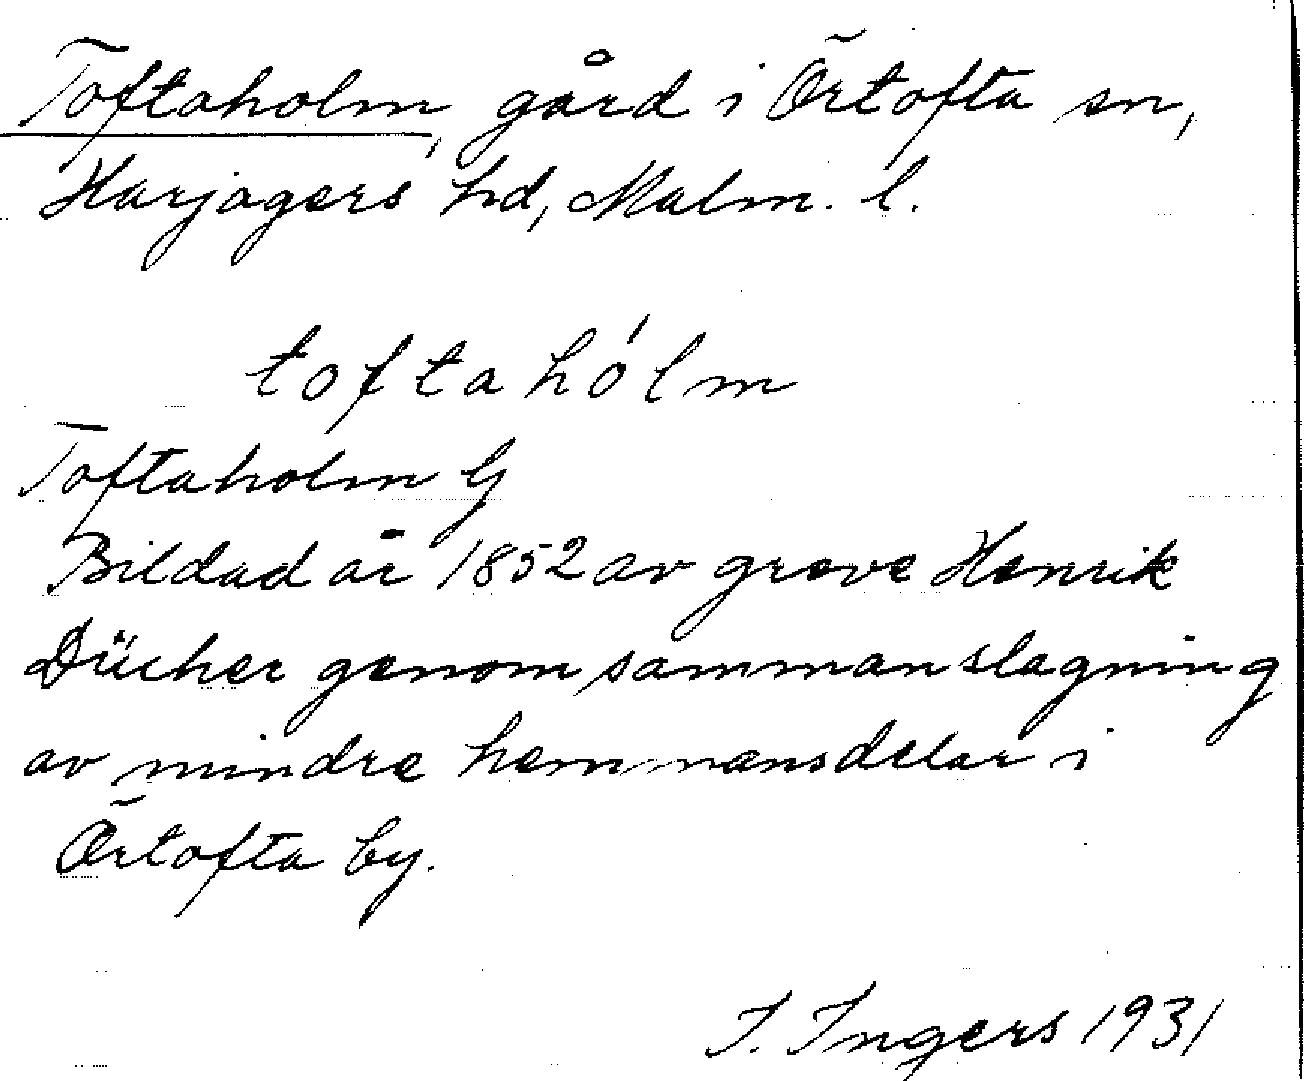 Toftaholm, gård i Örtofta sn,
Harjagers hd, Malm. l.
toftahólm
Toftaholm G
Bildad år 1852 av greve Henrik
Dücker genom sammanslagning
av mindre hemmansdelar i
Örtofta by.
I. Ingers 1931